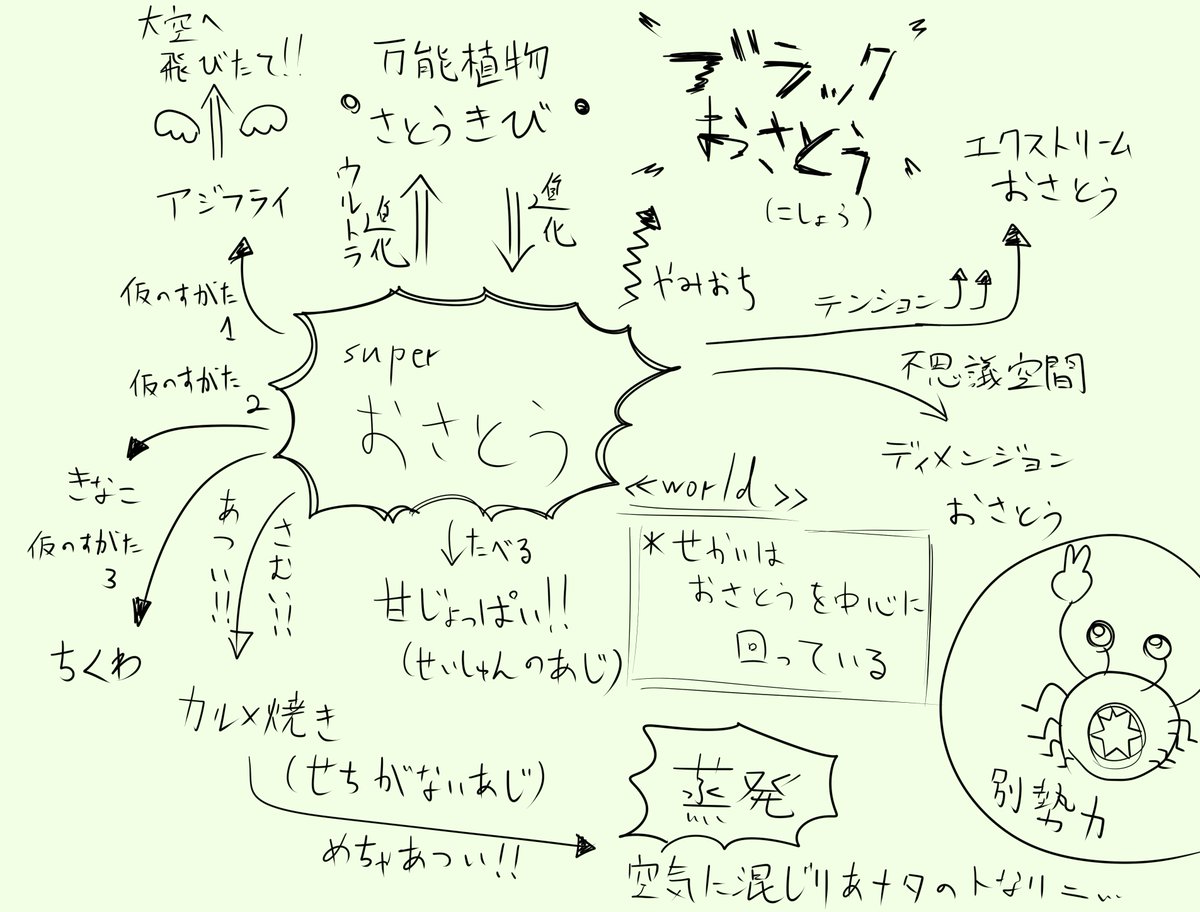 大空へ
飛びたて!!
万能植物
さとうきび
ブラック
おさとう
(こしょう)
エクストリーム
おさとう
アジフライ
ウルトラ
進化
進化
やみおち
テンション
仮のすがた
1
仮のすがた
2
super
おさとう
不思議空間
ディメンジョン
おさとう
きなこ
仮のすがた
3
ちくわ
あつい!!
さむい!!
たべる
甘じょっぱい!!
(せいしゅんのあじ)
<<world>>
*せかいは
おさとうを中心に
回っている
カルメ焼き
(せちがないあじ)
めちゃあつい!!
蒸発
空気に混じりあナタのトなリニ...
別勢力